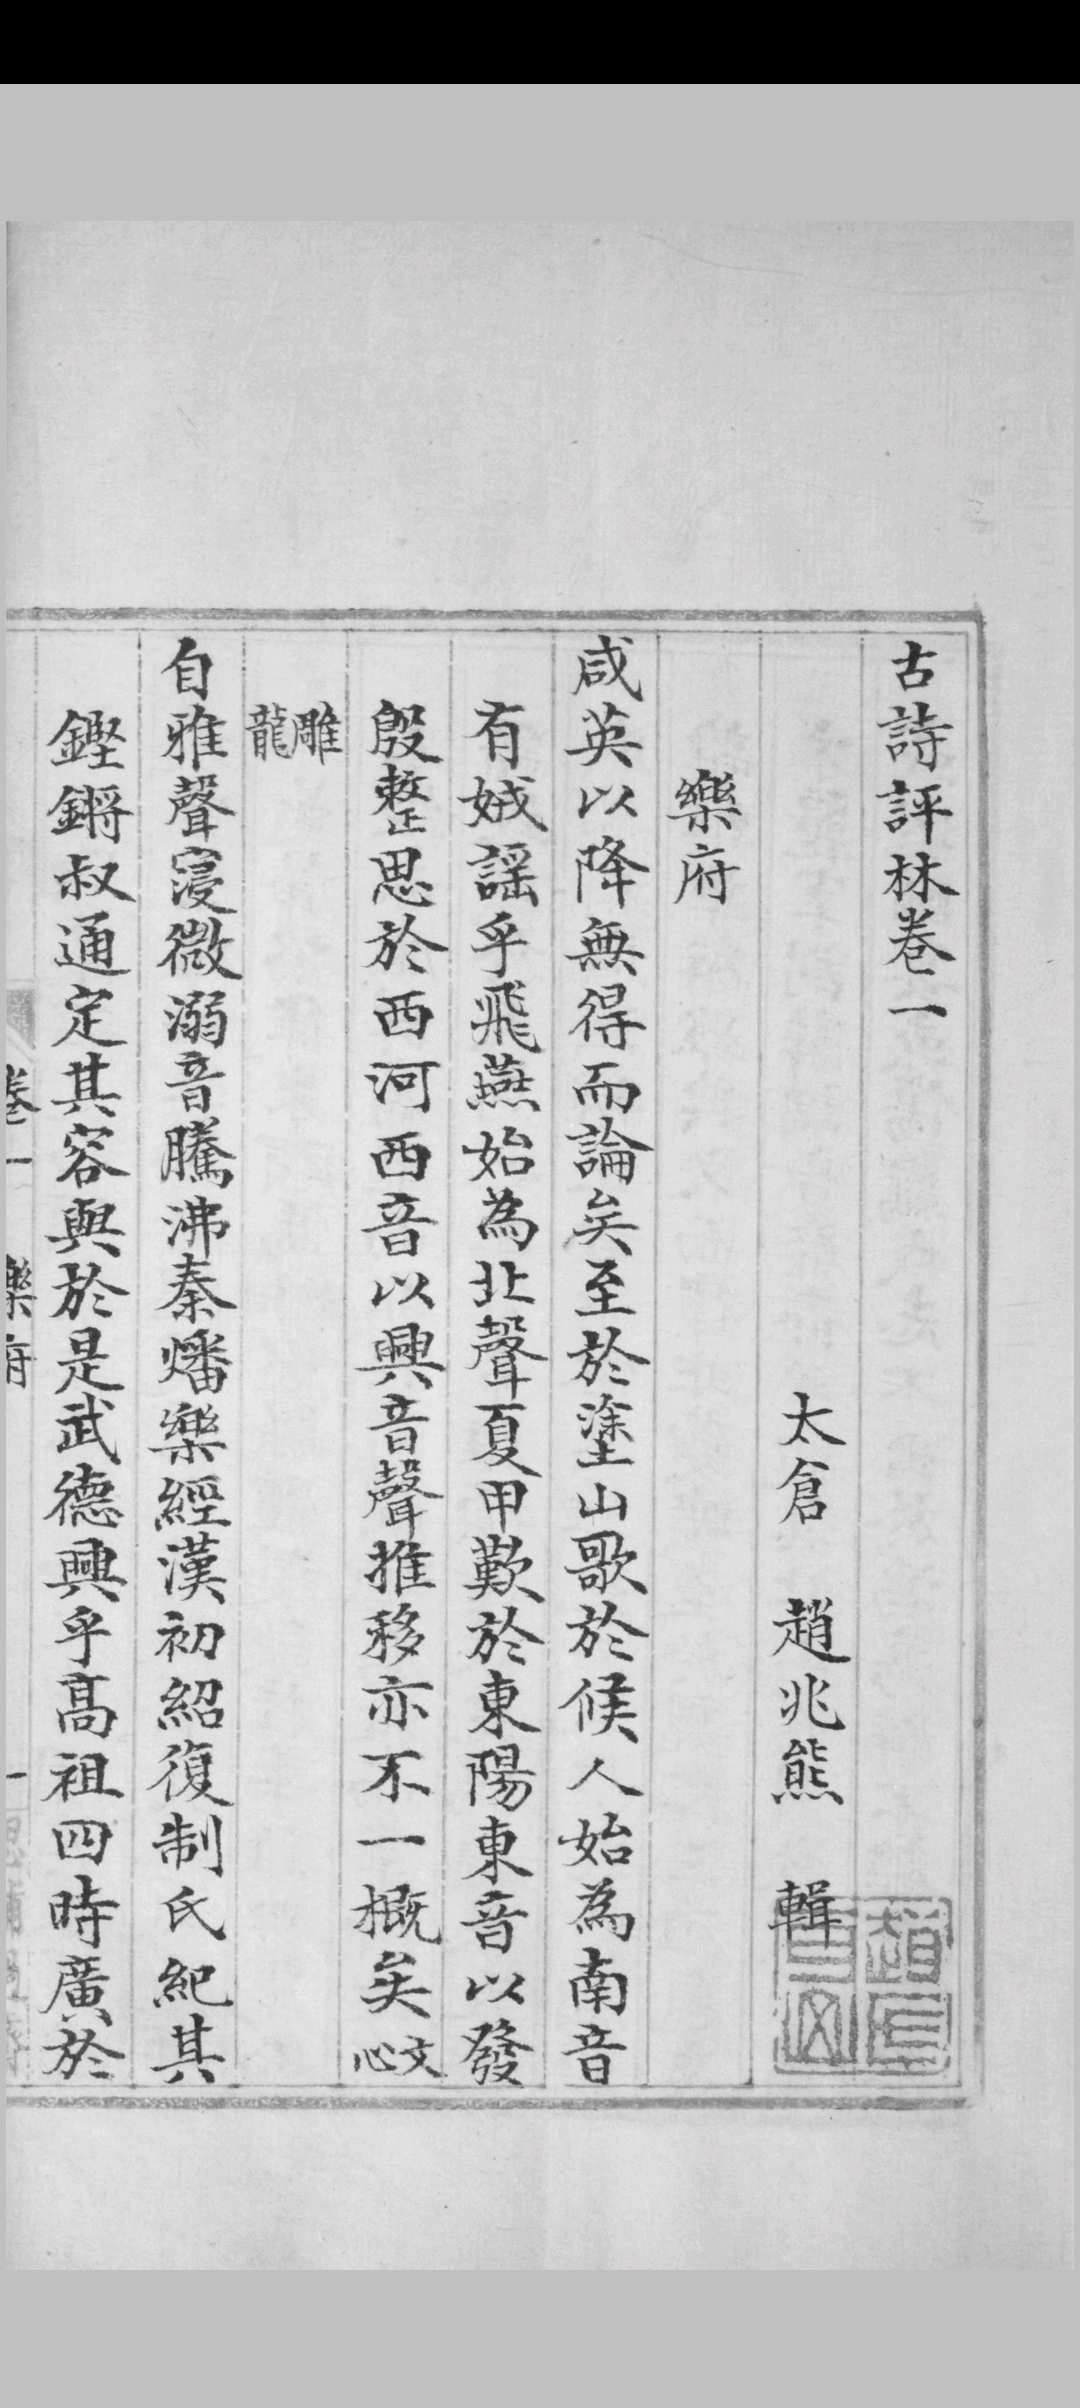 古詩評林卷一
太倉 趙兆熊 輯
樂府
咸英以降無得而論矣至於塗山歌於候人始為南音
有娀謠乎飛燕始為北聲夏甲歎於東陽東音以發
殷整思於西河西音以興音聲推移亦不一概矣文心
雕龍
自雅聲寖微溺音騰沸秦燔樂經漢初紹復制氏紀其
鏗鏘叔通定其容與於是武德興乎高祖四時廣於
卷一 樂府 一